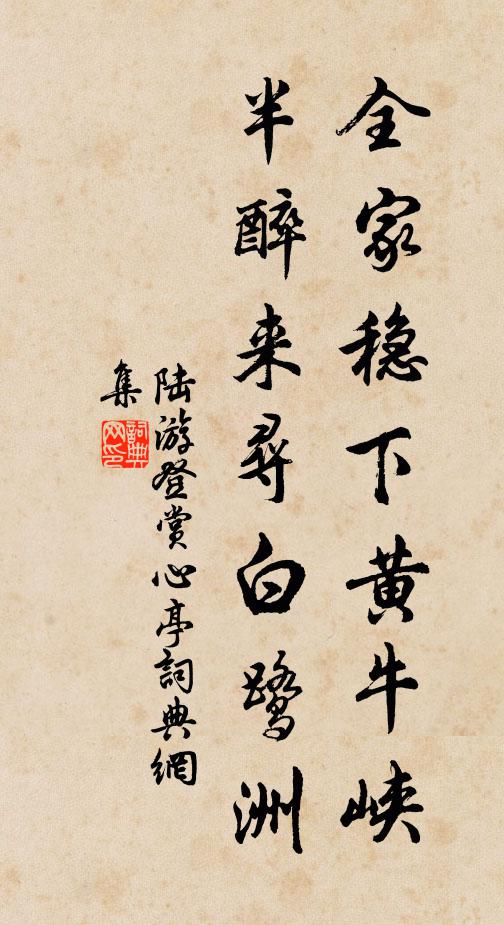 全家稳下黄牛峡
半醉来寻白鹭洲
陆游登赏心亭詞典網
集
詞典
网印